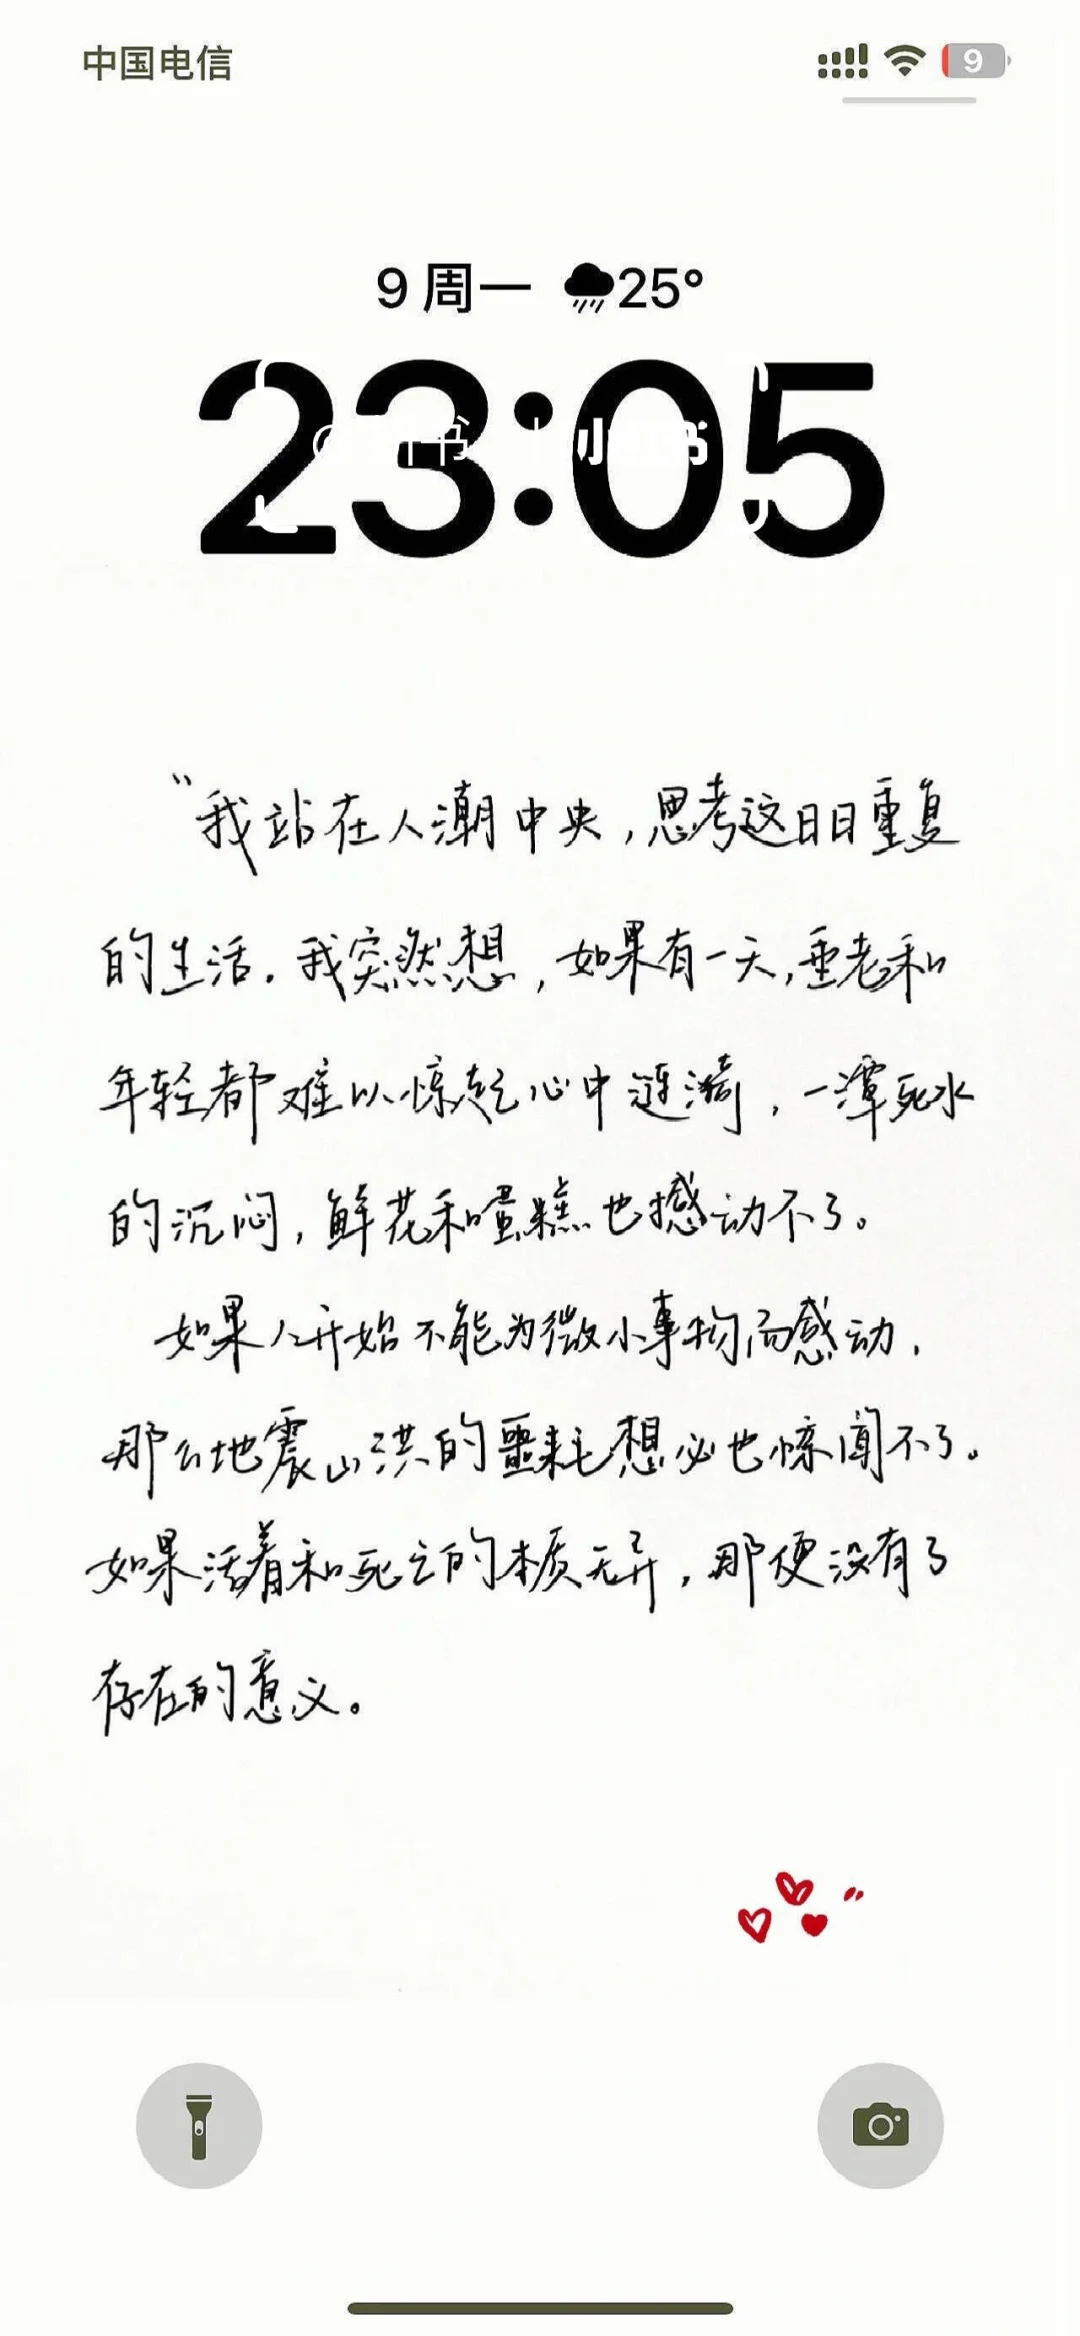 中国电信
9
9 周一 25°
23:05
小红书
“我站在人潮中央,思考这日日重复
的生活。我突然想,如果有一天,垂老和
年轻都难以惊起心中涟漪,一潭死水
的沉闷,鲜花和蛋糕也撼动不了。
如果人开始不能为微小事物而感动,
那么地震山洪的噩耗想必也惊闻不了。
如果活着和死亡的本质无异,那便没有了
存在的意义。
”